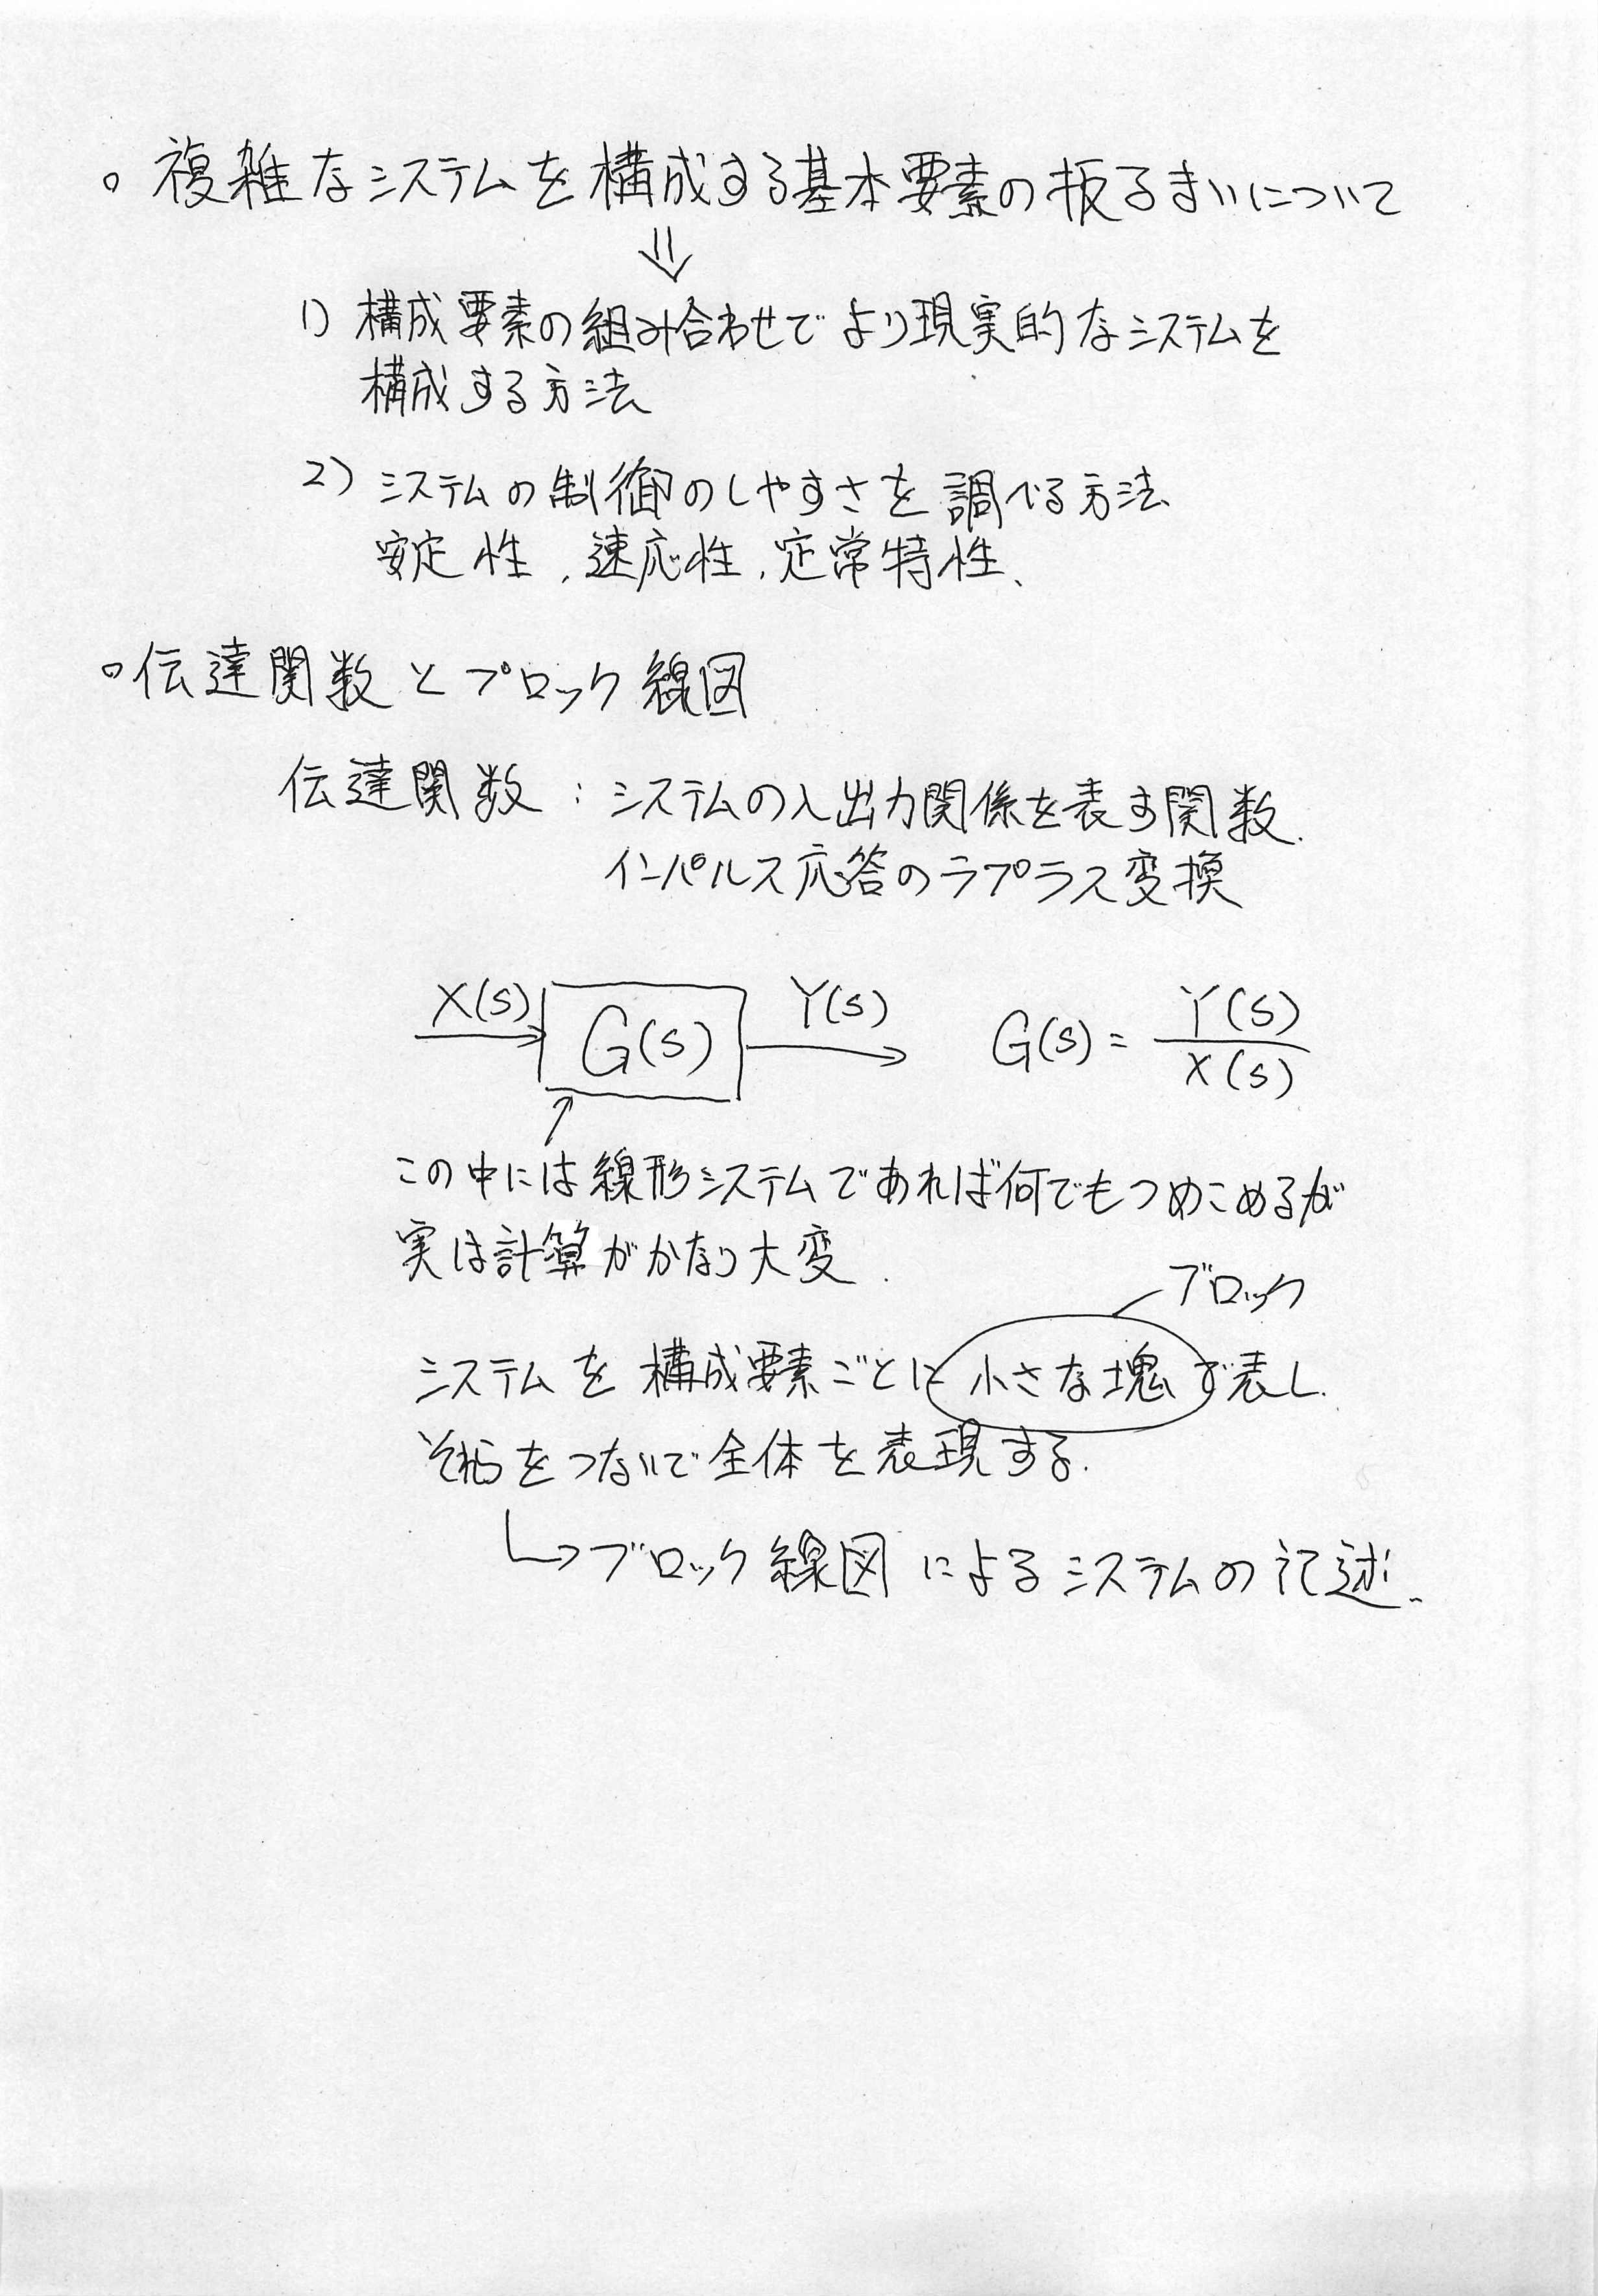 。複雑なシステムを構成する基本要素の振るまいについて
⇓
1) 構成要素の組み合わせでより現実的なシステムを
構成する方法
2) システムの制御のしやすさを調べる方法
安定性, 速応性, 定常特性、
。伝達関数とブロック線図
伝達関数 : システムの入出力関係を表す関数.
インパルス応答のラプラス変換
X(s) G(s) Y(s) G(s) = Y(s) / X(s)
この中には線形システムであれば何でもつめこめるが
実は計算がかなり大変.
ブロック
システムを構成要素ごとに小さな塊で表し.
それらをつないで全体を表現する.
↳ブロック線図によるシステムの記述.